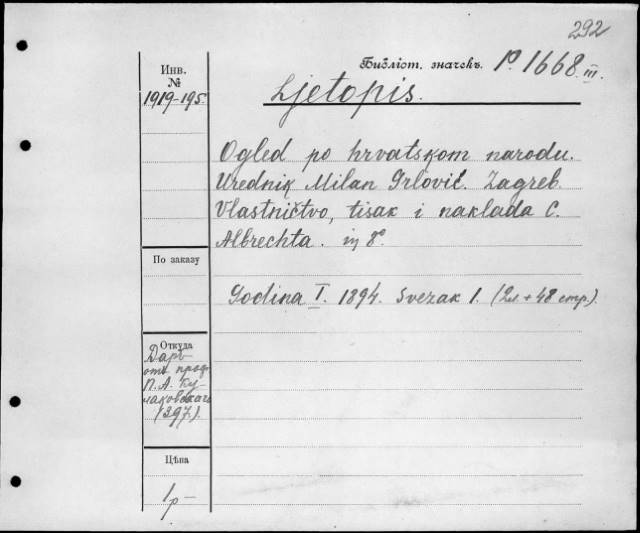 292
Инв.
№
1919-195.
Библіот. значекъ. P. 1668. III.
Ljetopis.
Ogled po hrvatskom narodu.
Urednik Milan Grlović. Zagreb.
Vlastničtvo, tisak i naklada C.
Albrechta. in 8°.
По заказу
Godina I. 1894. Svezak 1. (2л + 48 стр.).
Откуда
Даръ
отъ проф.
П. А. Ку-
лаковскаго
(397.).
Цѣна
1р—